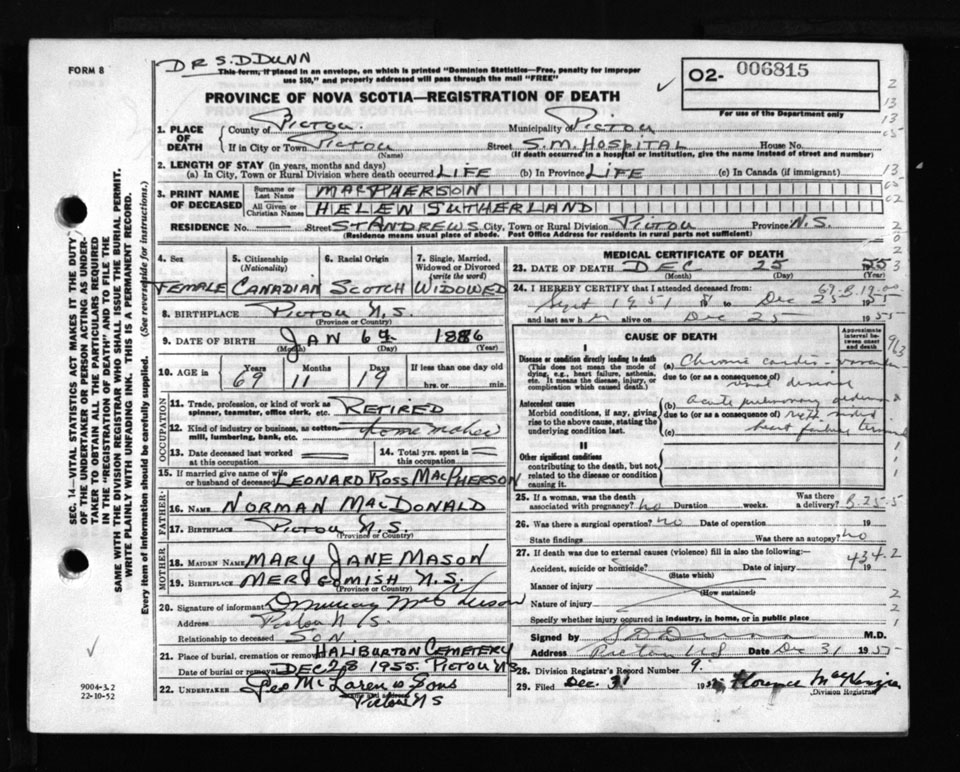 DR S.D. DUNN
FORM 8
This form, if placed in an envelope, on which is printed "Dominion Statistics—Free, penalty for improper
use $50," and properly addressed will pass through the mail "FREE"
O2- 006815
For use of the Department only
PROVINCE OF NOVA SCOTIA—REGISTRATION OF DEATH
1. PLACE OF DEATH County of PICTOU Municipality of PICTOU
If in City or Town PICTOU Street S.M. HOSPITAL House No.
(Name) (If death occurred in a hospital or institution, give the name instead of street and number)
2. LENGTH OF STAY (in years, months and days)
(a) In City, Town or Rural Division where death occurred LIFE (b) In Province LIFE (c) In Canada (if immigrant)
3. PRINT NAME OF DECEASED Surname or Last Name MACPHERSON
All Given or Christian Names HELEN SUTHERLAND
RESIDENCE No. — Street ST ANDREWS City, Town or Rural Division PICTOU Province N.S.
(Residence means usual place of abode. Post Office Address for residents in rural parts not sufficient)
4. Sex FEMALE
5. Citizenship (Nationality) CANADIAN
6. Racial Origin SCOTCH
7. Single, Married, Widowed or Divorced (write the word) WIDOWED
8. BIRTHPLACE PICTOU N.S.
(Province or Country)
9. DATE OF BIRTH JAN 6th 1886
(Month) (Day) (Year)
10. AGE in Years 69 Months 11 Days 19 If less than one day old
hrs. or min.
OCCUPATION
11. Trade, profession, or kind of work as spinner, teamster, office clerk, etc. RETIRED
12. Kind of industry or business, as cotton-mill, lumbering, bank, etc. Home maker
13. Date deceased last worked at this occupation
14. Total yrs. spent in this occupation
15. If married give name of wife or husband of deceased LEONARD ROSS MACPHERSON
FATHER
16. NAME NORMAN MACDONALD
17. BIRTHPLACE PICTOU N.S.
(Province or Country)
MOTHER
18. MAIDEN NAME MARY JANE MASON
19. BIRTHPLACE MERIGOMISH N.S.
(Province or Country)
20. Signature of informant
Address Pictou N S.
Relationship to deceased SON.
21. Place of burial, cremation or removal HALIBURTON CEMETERY
Date of burial or removal DEC 28 1955. PICTOU N S
22. UNDERTAKER Geo McLaren & Sons
Pictou N S
MEDICAL CERTIFICATE OF DEATH
23. DATE OF DEATH DEC 25 1955
(Month) (Day) (Year)
24. I HEREBY CERTIFY that I attended deceased from:
Sept 1951 to Dec 25 1955
and last saw her alive on Dec 25 1955
CAUSE OF DEATH
Approximate interval between onset and death
I
Disease or condition directly leading to death
(This does not mean the mode of dying, e.g., heart failure, asthenia, etc. It means the disease, injury, or complication which caused death.)
(a) Chronic cardio-
due to (or as a consequence of)
renal disease
Antecedent causes
Morbid conditions, if any, giving rise to the above cause, stating the underlying condition last.
(b) Acute pulmonary
due to (or as a consequence of)
(c) heart failure
II
Other significant conditions
contributing to the death, but not related to the disease or condition causing it.
25. If a woman, was the death associated with pregnancy? no Duration weeks. Was there a delivery?
26. Was there a surgical operation? no Date of operation 19
State findings Was there an autopsy? no
27. If death was due to external causes (violence) fill in also the following:—
434.2
Accident, suicide or homicide? Date of injury 19
(State which)
Manner of injury
(How sustained)
Nature of injury
Specify whether injury occurred in industry, in home, or in public place
Signed by S D Dunn M.D.
Address Pictou NS Date Dec 31 1955
28. Division Registrar's Record Number 9.
29. Filed Dec. 31 1955 Florence MacKenzie
Division Registrar
SEC. 14—VITAL STATISTICS ACT MAKES IT THE DUTY
OF THE UNDERTAKER OR PERSON ACTING AS UNDER-
TAKER TO OBTAIN ALL THE PARTICULARS REQUIRED
IN THE "REGISTRATION OF DEATH" AND TO FILE THE
SAME WITH THE DIVISION REGISTRAR WHO SHALL ISSUE THE BURIAL PERMIT.
WRITE PLAINLY WITH UNFADING INK. THIS IS A PERMANENT RECORD.
Every item of information should be carefully supplied. (See reverse side for instructions.)
9004-3.2
22-10-52